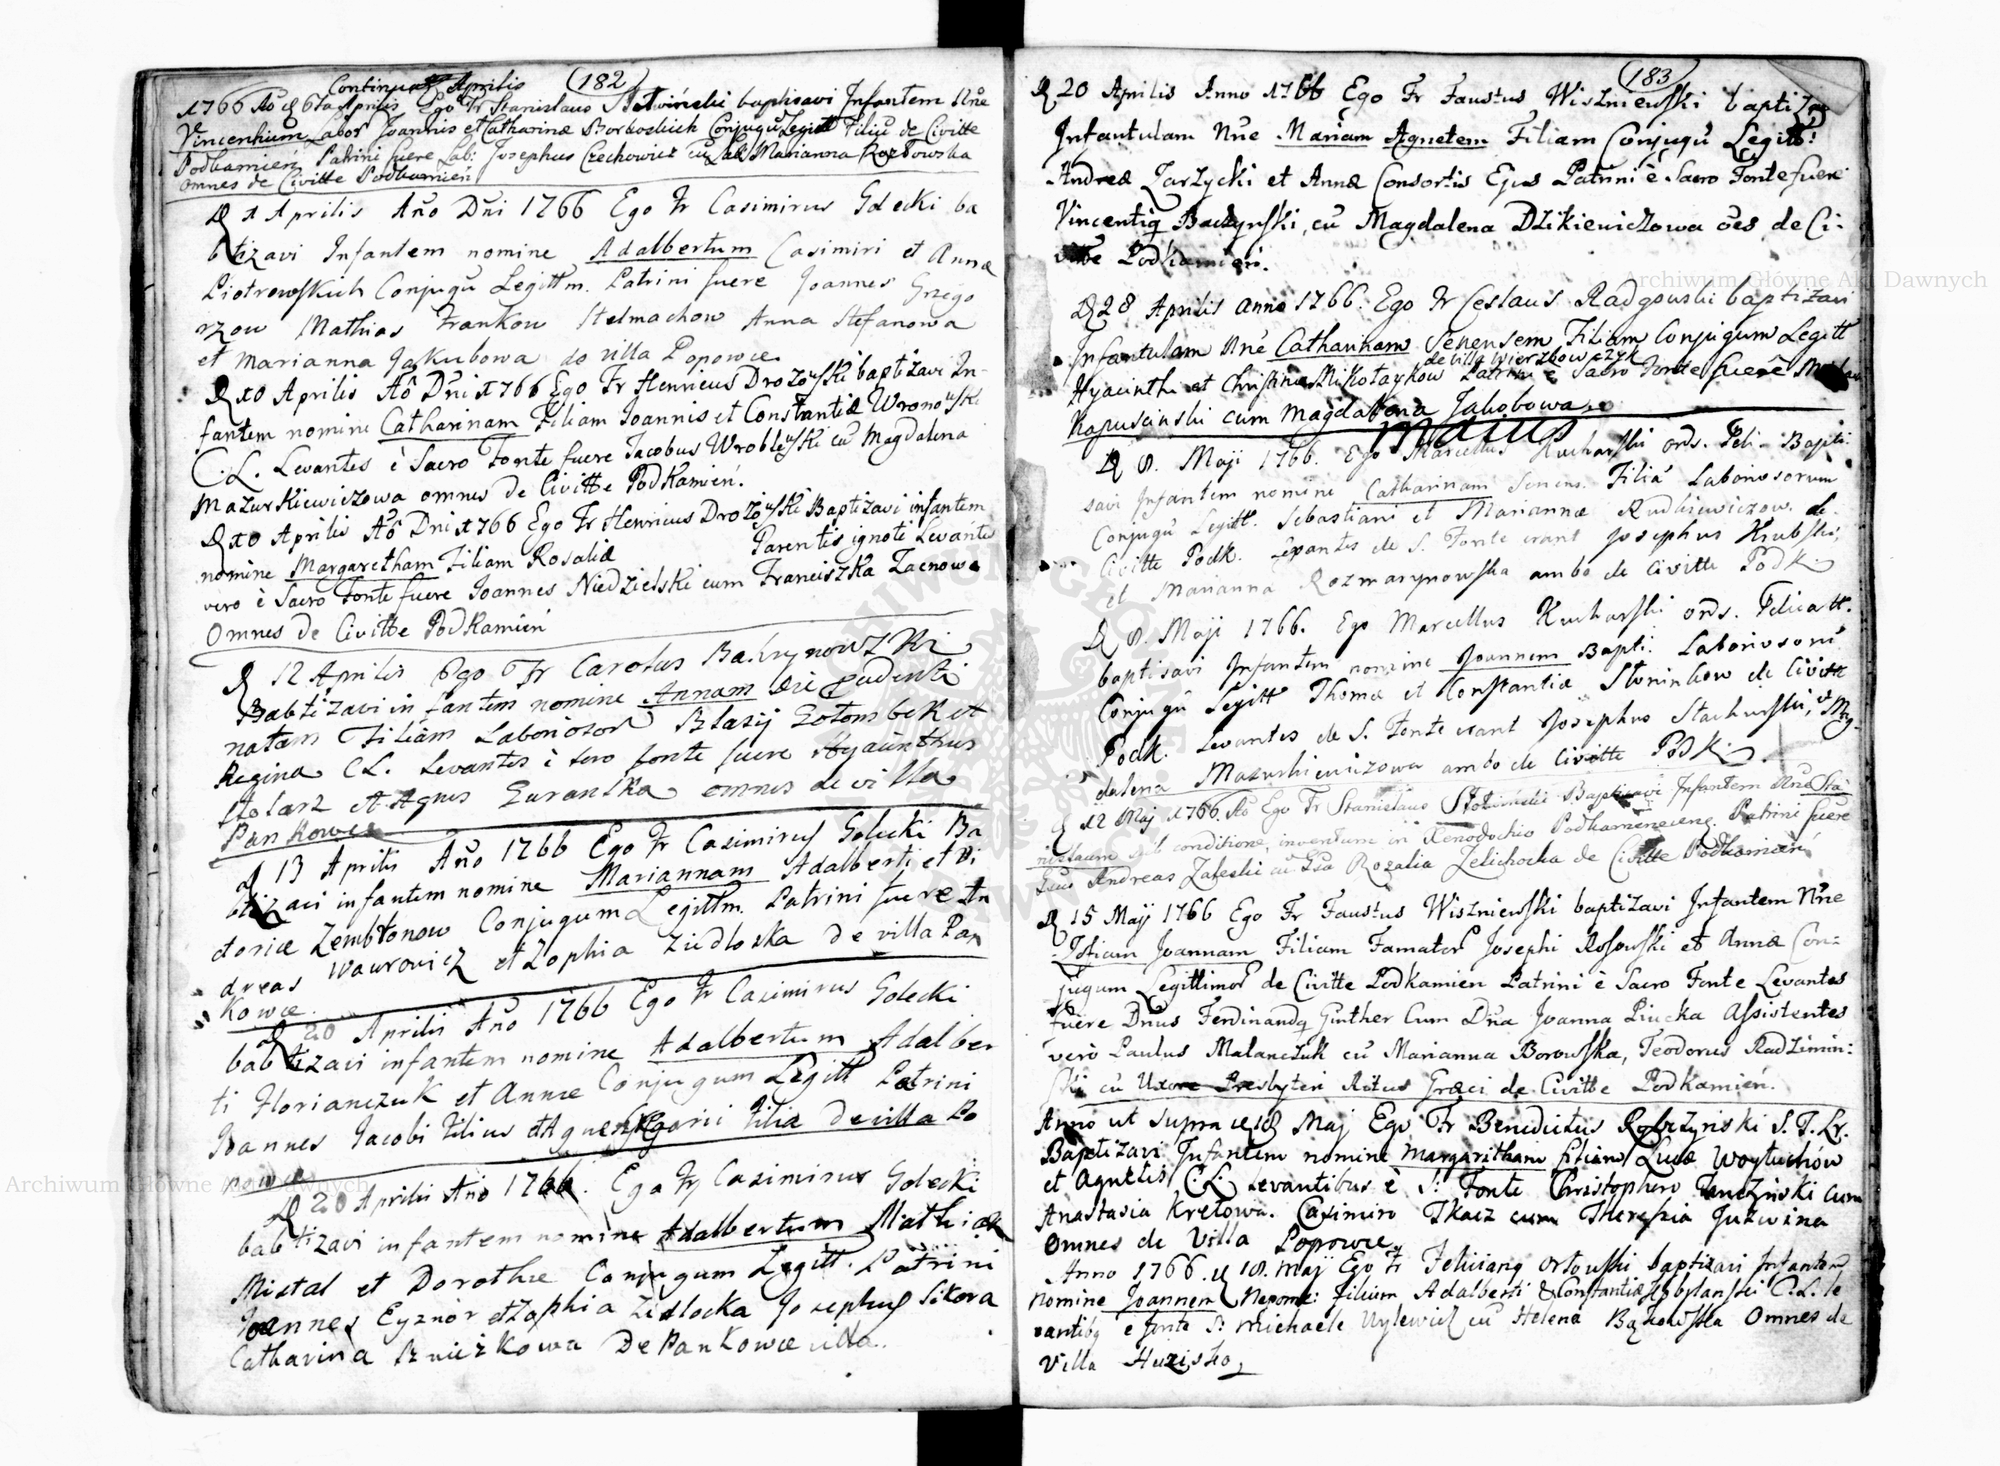 Continuat Aprilis (182)
1766 Ao d 6ta Aprilis Ego Fr Stanislaus baptisavi Infantem Nne
Vincentium Labor Joannis et Catharinæ Conjugū Legitt Filiū de Civitte
Podkamień Patrini fuere Lab: Josephus Czechowicz cū Marianna Kozłowska
omnes de Civitte Podkamień
d 1 Aprilis Año Dñi 1766 Ego Fr Casimirus Golecki ba
btizavi Infantem nomine Adalbertum Casimiri et Annæ
Piotrowskich Conjugū Legittm. Patrini fuere Joannes Grzego
rzow Mathias Frankow Stelmachow Anna Stefanowa
et Marianna Jakubowa de villa Popowce
d 10 Aprilis Aō Dñi 1766 Ego Fr Henricus Drozowski baptizavi In-
fantem nomine Catharinam Filiam Joannis et Constantiæ Wronowski
C.L. Levantes è Sacro Fonte fuere Jacobus Wroblewski cū Magdalena
Mazurkiewiczowa omnes de Civitte Podkamień.
d 10 Aprilis Aō Dñi 1766 Ego Fr Henricus Drozowski Baptizavi infantem
nomine Margaretham Filiam Rosaliæ Parentis ignoti Levantes
vero è Sacro Fonte fuere Joannes Niedzielski cum Franciszka Zacnowa
Omnes de Civitte Podkamień
d 12 Aprilis Ego Fr Carolus
Babtizavi in fantem nomine Annam
natam Filiam Laboriosor Blasij Gołombek et
Regina CL. Levantes è sero fonte fuere Hyacinthus
Stolarz et Agnes Guranska omnes de villa
Pankowce
d 13 Aprilis Año 1766 Ego Fr Casimirus Golecki Ba
btizavi infantem nomine Mariannam Adalberti et Vi
ctoriæ Zembronow Conjugum Legittm. Patrini fuere An
dreas Wawrowicz et Zophia Zidloska de villa Pan
kowce.
d 20 Aprilis Año 1766 Ego Fr Casimirus Golecki
babtizavi infantem nomine Adalbertum Adalber
ti Florianczuk et Annæ Conjugum Legitt Patrini
Joannes Jacobi Filius et Agnes Filia de villa Po
powce
d 20 Aprilis Año 1766. Ego Fr Casimirus Golecki
babtizavi infantem nomine Adalbertum Mathiæ
Mistal et Dorothæ Conjugum Legitt. Patrini
Joannes Eyznor et Zophia Zidlocka Josephus Sikora
Catharina De Pankowce villa.
(183)
d 20 Aprilis Anno 1766 Ego Fr Faustus Wiszniewski baptizavi
Infantulam Nne Mariam Agnetem Filiam Conjugū Legitt:
Andreæ Jarzycki et Annæ Consortis Ejus Patrini è Sacro Fonte fuere
Vincentiq Baczynski, cū Magdalena Dzikiewiczowa oēs de Ci:
vitte Podkamień.
d 28 Aprilis anno 1766. Ego Fr Ceslaus Radgowski baptizavi
Infantulam Nne Catharinam Senensem Filiam Conjugum Legitt
de villa Wierzbowczyk
Hyacinthi et Christinæ Mikołaykow Patrini è Sacro Fonte fuere
Kapuscinski cum Magdalena Jakobowa.
Maius
d 8. Maji 1766. Ego Marcellus Kucharski ords. Pdi. Bapti-
savi Infantem nomine Catharinam Senens. Filiā Laboriosorum
Conjugū Legitt. Sebastiani et Mariannæ Rudkiewiczow. de
Civitte Podk. Levantes de S. Fonte erant Josephus
et Marianna Rozmarynowska ambo de Civitte Podk.
d 8. Maji 1766. Ego Marcellus Kucharski ords.
baptisavi Infantem nomine Joannem Bapti. Laboriosorū
Conjugū Legitt Thomæ et Constantiæ Słoninkow de Civitte
Podk. Levantes de S. Fonte erant Josephus Stachurski, et Mag-
dalena Mazurkiewiczowa ambo de Civitte Podk.
d 12 Maj 1766. Ao Ego Fr Stanislaus Baptisavi Infantem Nne Sta
nislaum sub conditione, inventum in Xenodochio Podkamenecensi. Patrini fuere
Andreas Zaleski cū Rozalia Zelichocka de Civitte Podkamień
d 15 Maij 1766 Ego Fr Faustus Wiszniewski baptizavi Infantem Nne
Joannam Filiam Famator Josephi Rosowski et Annæ Con=
jugum Legittimor de Civitte Podkamien Patrini è Sacro Fonte Levantes
fuere Dnus Ferdinandq Ginther Cum Dña Joanna Piucka Assistentes
verò Paulus Malanczuk cū Marianna Borowska, Teodorus Radzimin:
ski cū Uxore Presbyteri Ritus Græci de Civitte Podkamień.
Anno ut supra d 18 Maj Ego Fr Benedictus S. T. Lr.
Baptizavi Infantem nomine Margaritham filiam Lucæ Woytuchów
et Agnetis C.L. Levantibus è S: Fonte Christophero cum
Anastasia Kretowa. Casimiro Tkacz cum Theresia Juzwina
Omnes de Villa Popowce
Anno 1766. d 18. Maj Ego Fr Felicianq Orłowski baptizavi Infantem
nomine Joannem Nepom: Filium Adalberti & Constantiæ C.L. le
vantibq è fonte S: Michaele cū Helena Bąkowska Omnes de
Villa Huzisko
Archiwum Główne Akt Dawnych
Archiwum Główne Akt Dawnych
ARCHIWUM GŁÓWNE AKT DAWNYCH